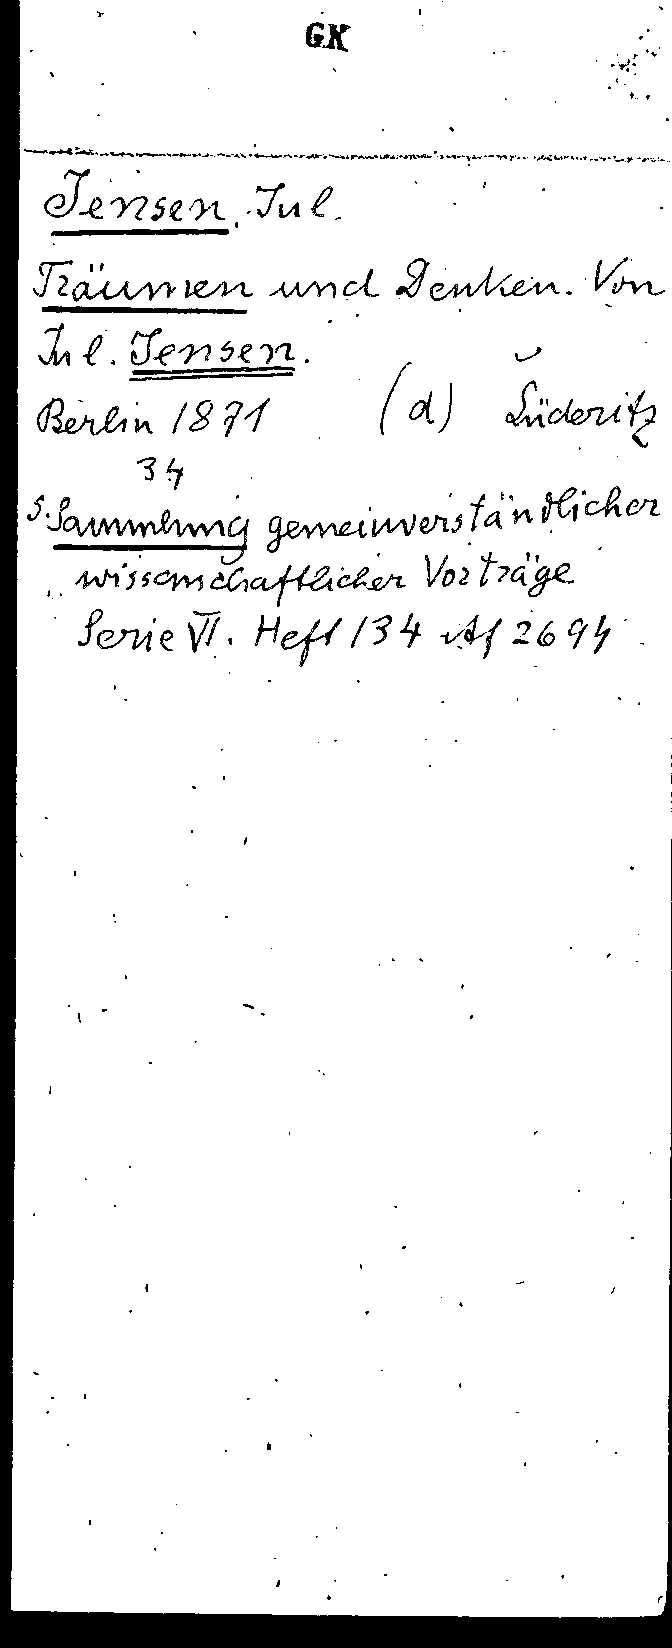 GK
Jensen, Jul.
Träumen und Denken. Von
Jul. Jensen.
Berlin 1871 (d) Lüderitz
34
s. Sammlung gemeinverständlicher
wissenschaftlicher Vorträge
Serie VI. Heft 134 Af 2694